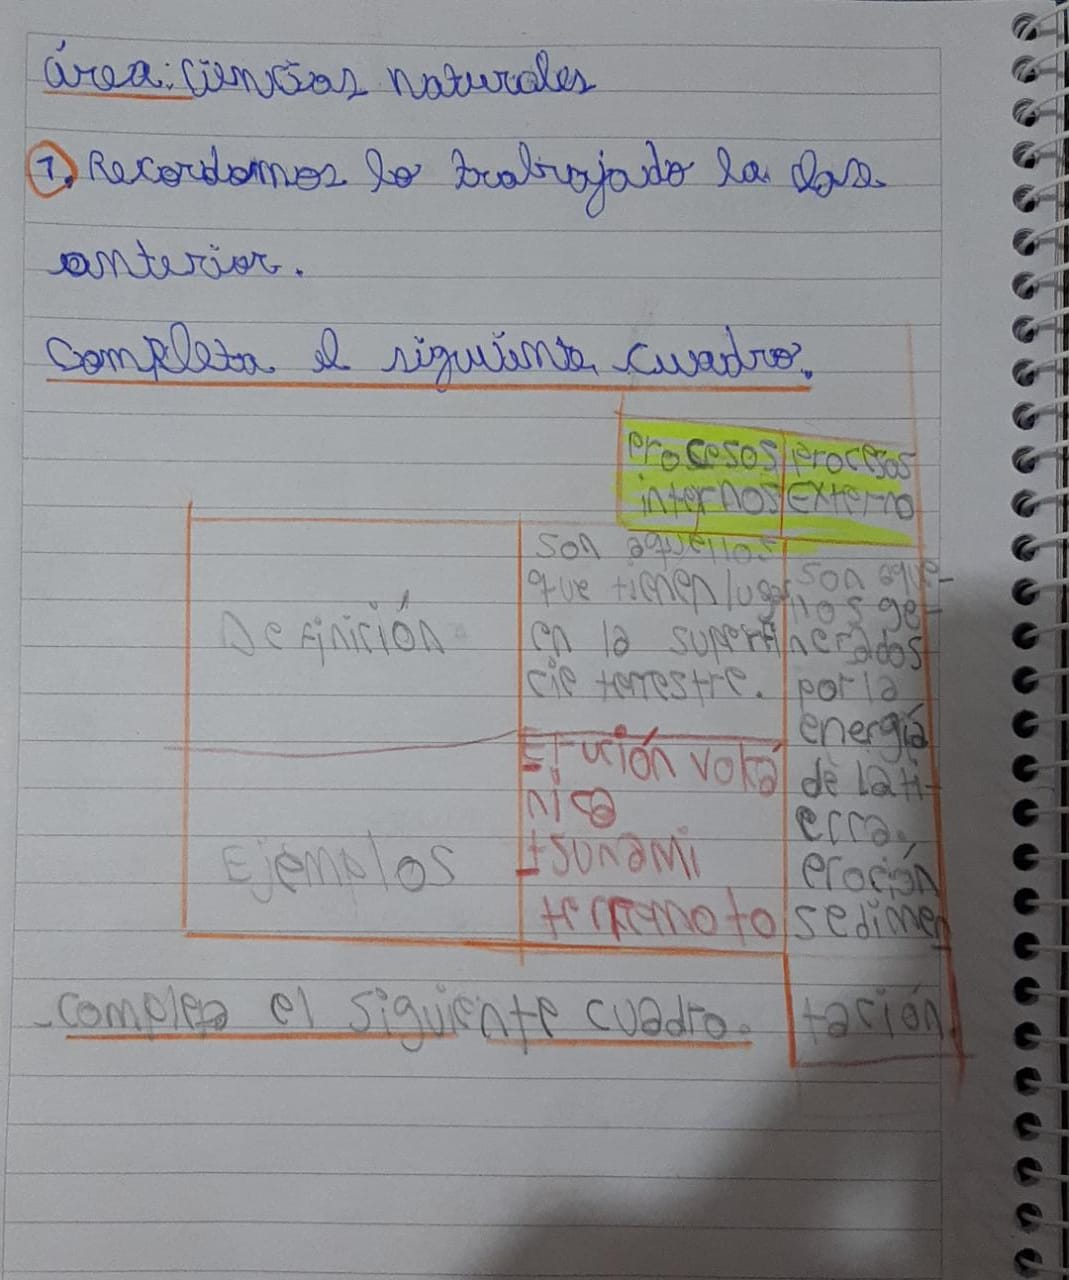 área: ciencias naturales
1. Recordamos lo trabajado la clas
anterior.
completa el siguiente cuadro.
procesos internos
procesos externo
Definición
son aquellos
que tienen lugar
en la superfi
cie terrestre.
son aque-
llos ge-
nerados
por la
energía
de la ti-
erra.
Ejemplos
volcá
nica
tsunami
terremoto
eroción
sedimen
tación
-completa el siguiente cuadro.